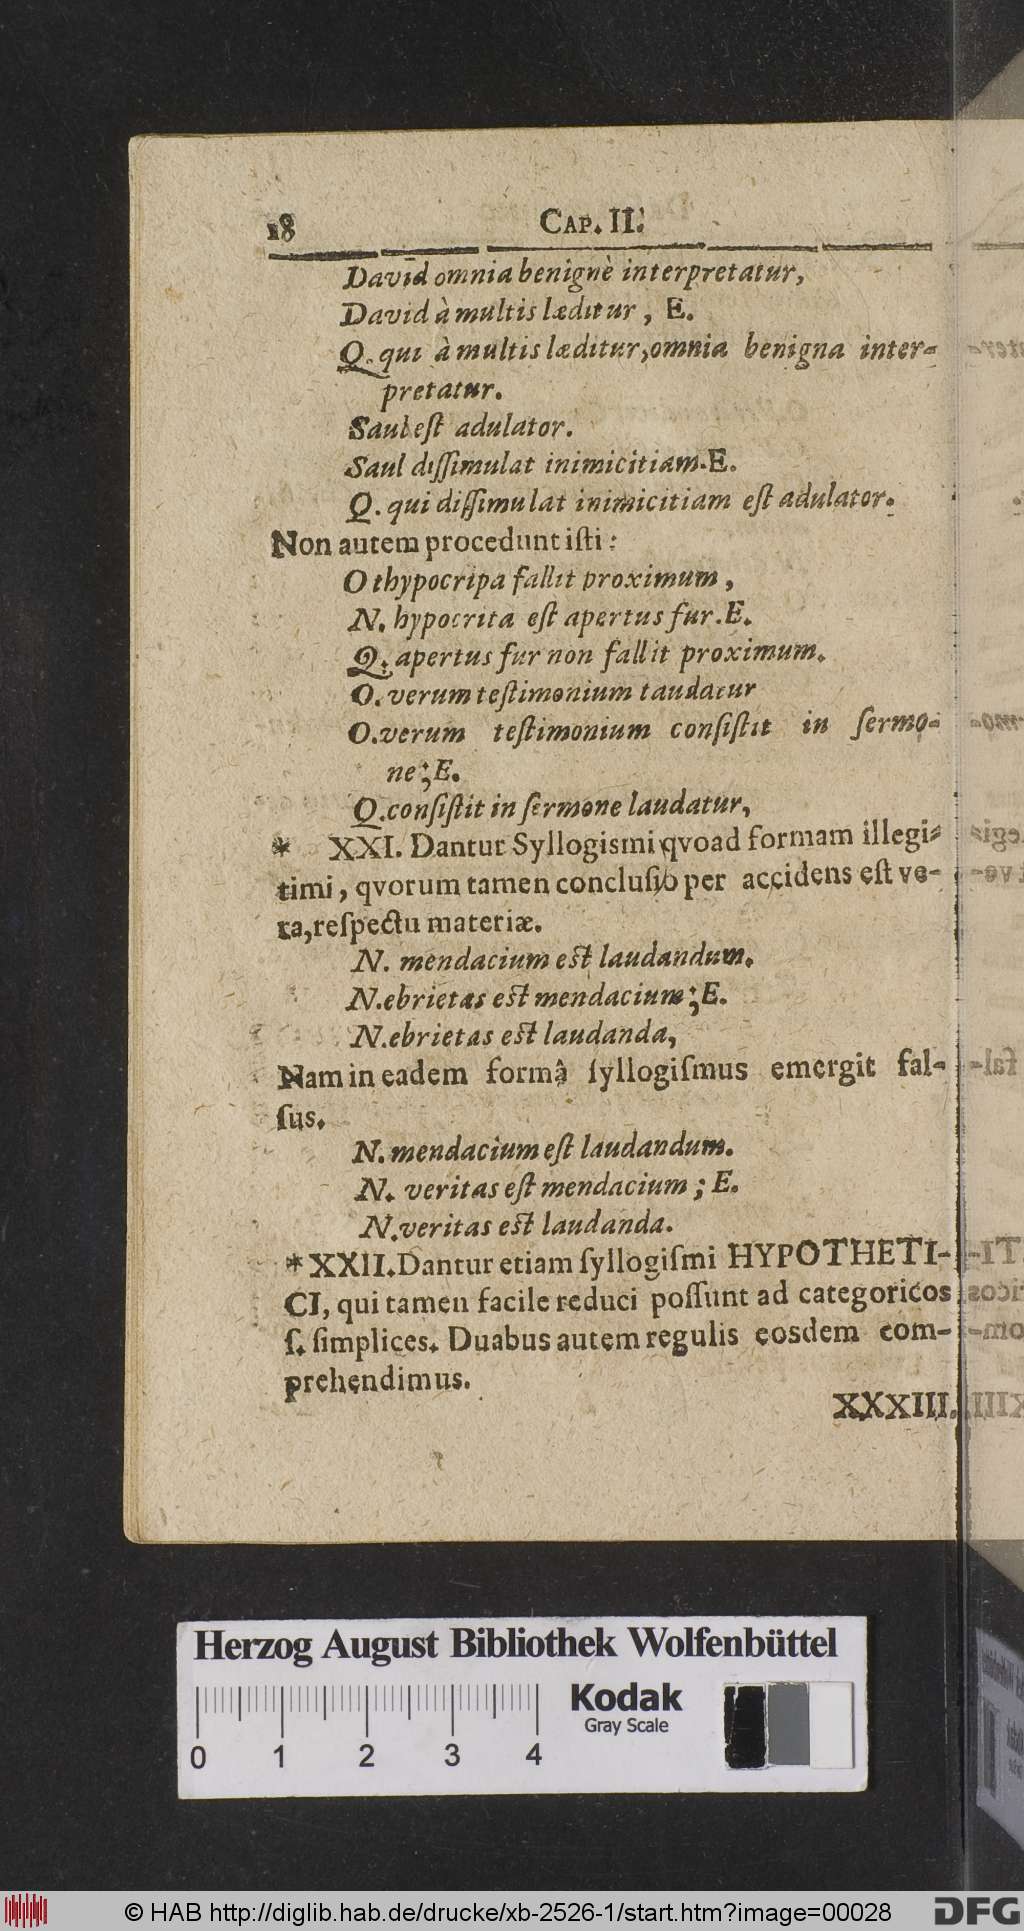 18 CAP. II.
David omnia benignè interpretatur,
David à multis læditur, E.
Q. qui à multis læditur, omnia benigna inter-
pretatur.
Saul eſt adulator.
Saul diſſimulat inimicitiam. E.
Q. qui diſſimulat inimicitiam eſt adulator.
Non autem procedunt iſti:
O thypocripa fallit proximum,
N. hypocrita eſt apertus fur. E.
Q. apertus fur non fallit proximum.
O. verum teſtimonium taudatur
O. verum teſtimonium conſiſtit in ſermo-
ne; E.
Q. conſiſtit in ſermone laudatur,
* XXI. Dantur Syllogismi qvoad formam illegi-
timi, qvorum tamen concluſio per accidens eſt ve-
ra, reſpectu materiæ.
N. mendacium eſt laudandum.
N. ebrietas eſt mendacium; E.
N. ebrietas eſt laudanda,
Nam in eadem formâ ſyllogiſmus emergit fal-
ſus.
N. mendacium eſt laudandum.
N. veritas eſt mendacium; E.
N. veritas eſt laudanda.
* XXII. Dantur etiam ſyllogiſmi HYPOTHETI-
CI, qui tamen facile reduci poſſunt ad categoricos
ſ. ſimplices. Duabus autem regulis eosdem com-
prehendimus.
XXXIII.
Herzog August Bibliothek Wolfenbüttel
Kodak
Gray Scale
0 1 2 3 4
© HAB http://diglib.hab.de/drucke/xb-2526-1/start.htm?image=00028
DFG